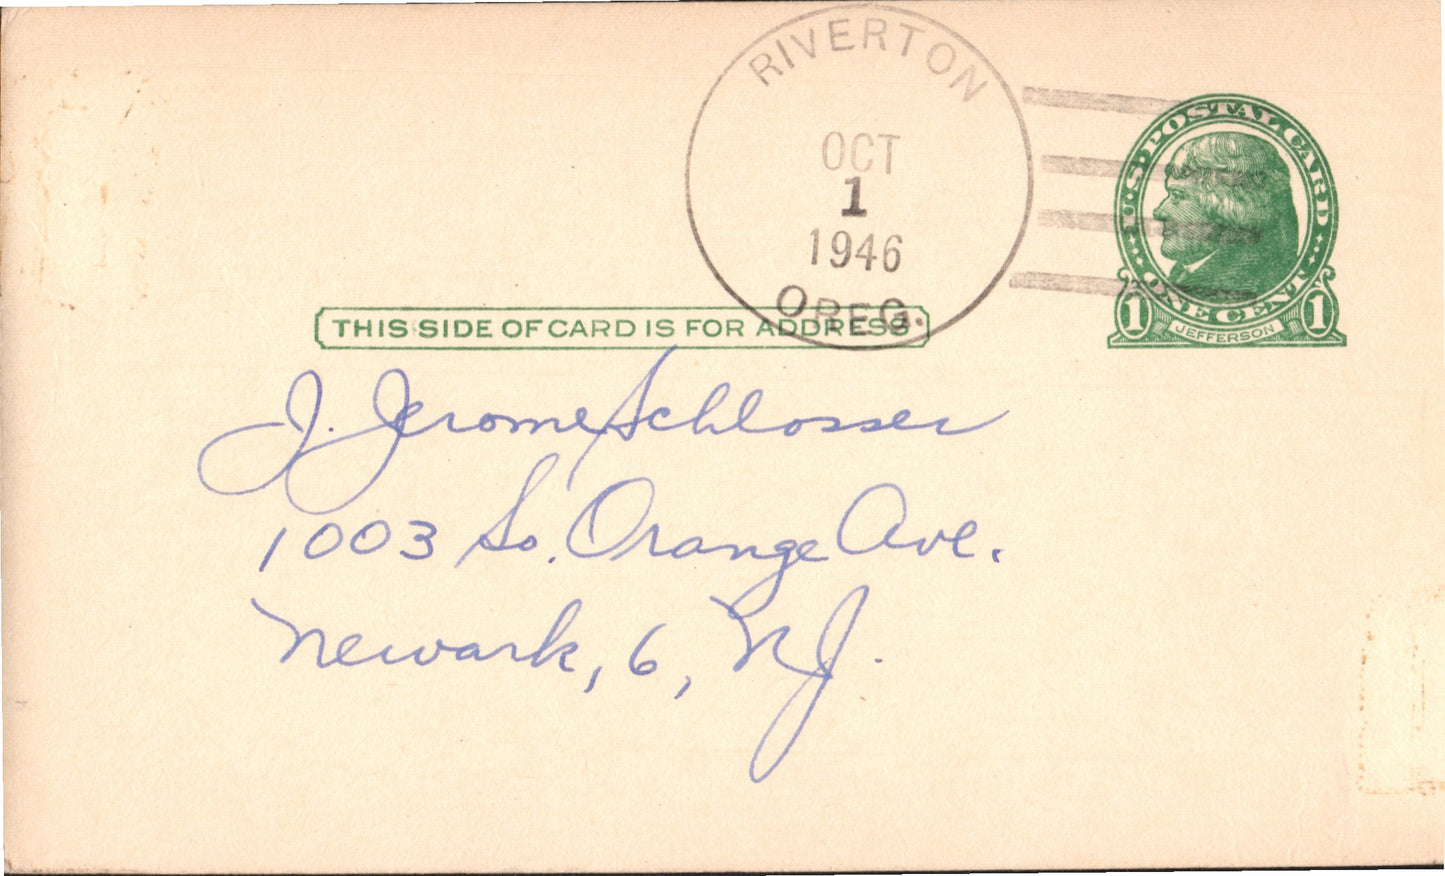 RIVERTON
OCT
1
1946
OREG.
U.S. POSTAL CARD
ONE CENT
1 1
JEFFERSON
THIS SIDE OF CARD IS FOR ADDRESS
J. Jerome Schlosser
1003 So. Orange Ave.
Newark, 6, N.J.